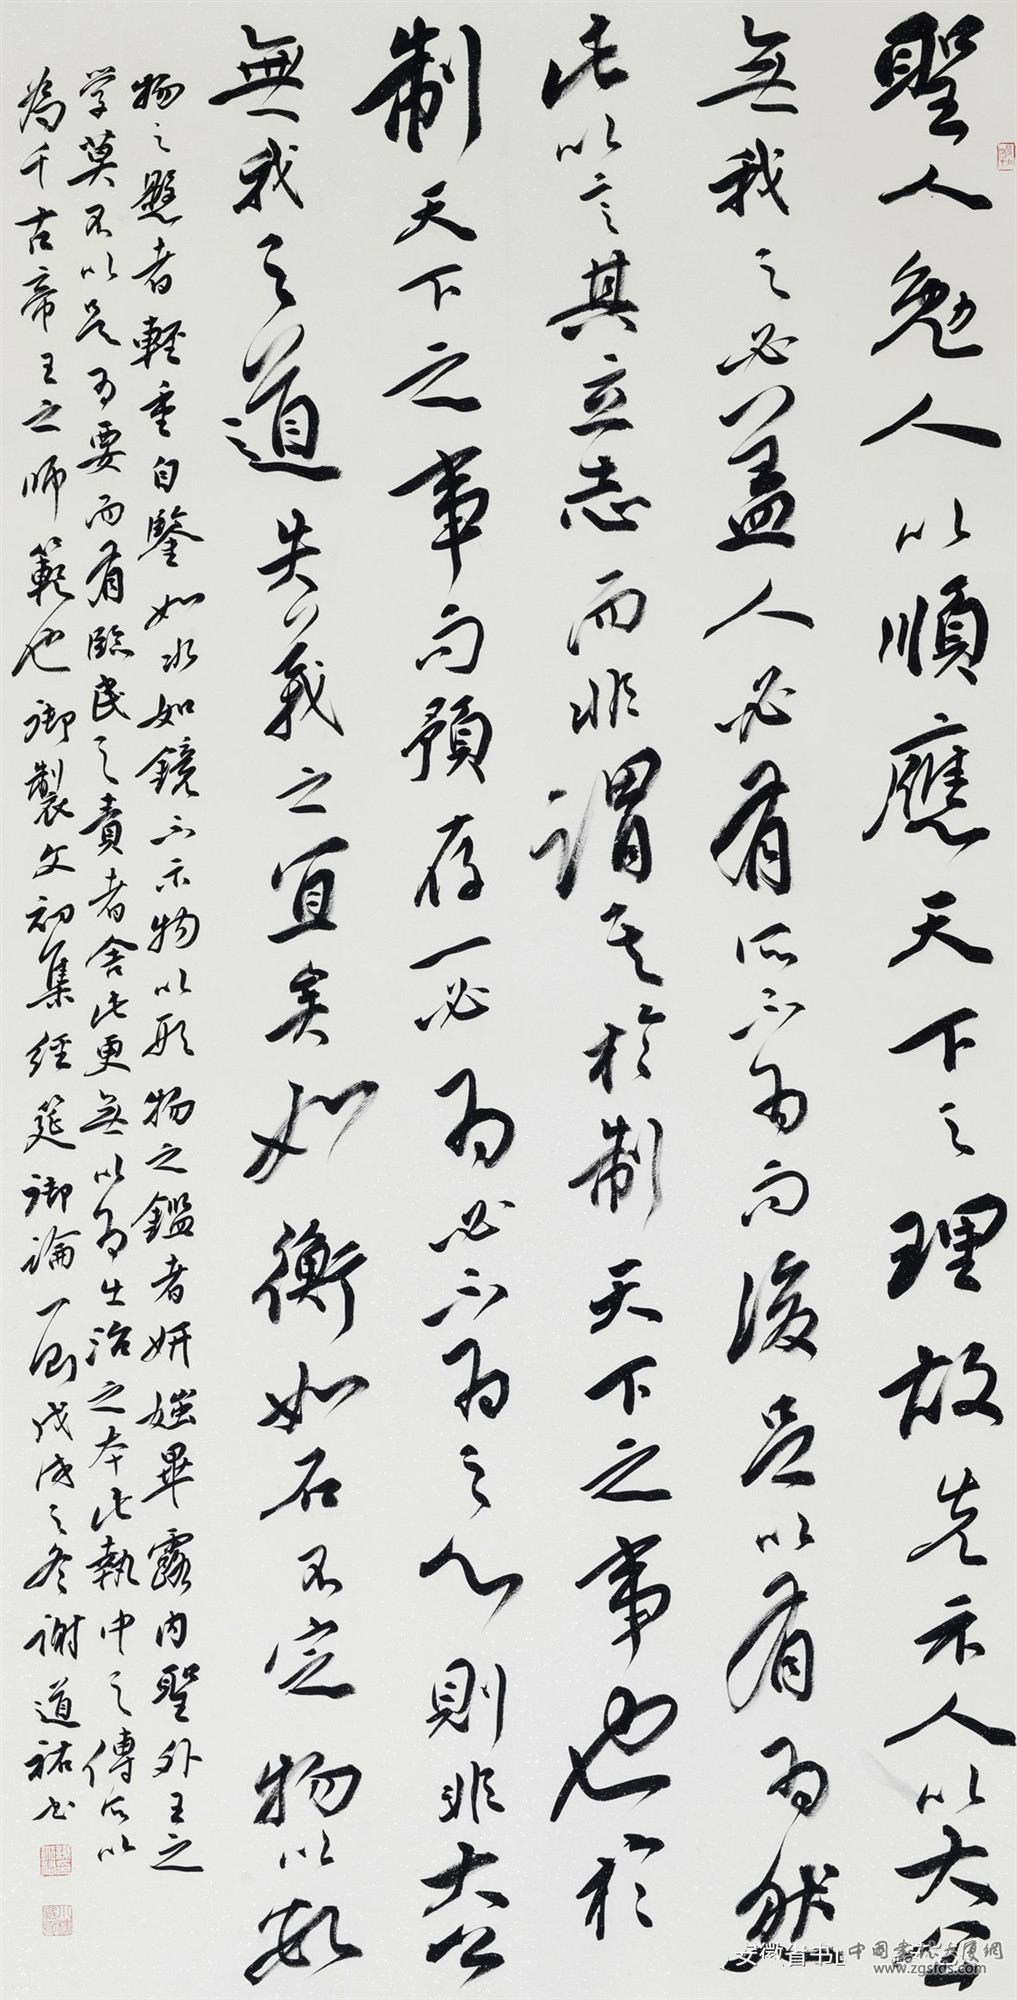 聖人勉人以順應天下之理故先示人以大公
無我之必蓋人必有所不為而後足以有為然
此以言其立志而非謂其於制天下之事也於
制天下之事而預存一必為必不為之心則非大公
無我之道失公義之宜矣如衡如石不定物以數
物之懸者輕重自鑒如水如鏡不示物以形物之鑑者妍媸畢露內聖外王之
学莫不以是為要而有臨民之責者舍此更無以為出治之本此執中之傳所以
為千古帝王之師範也御製文初集經筵御論一則戊戌之冬谢道祐书
安徽省书
中國書法大廈網
www.zgsfds.com